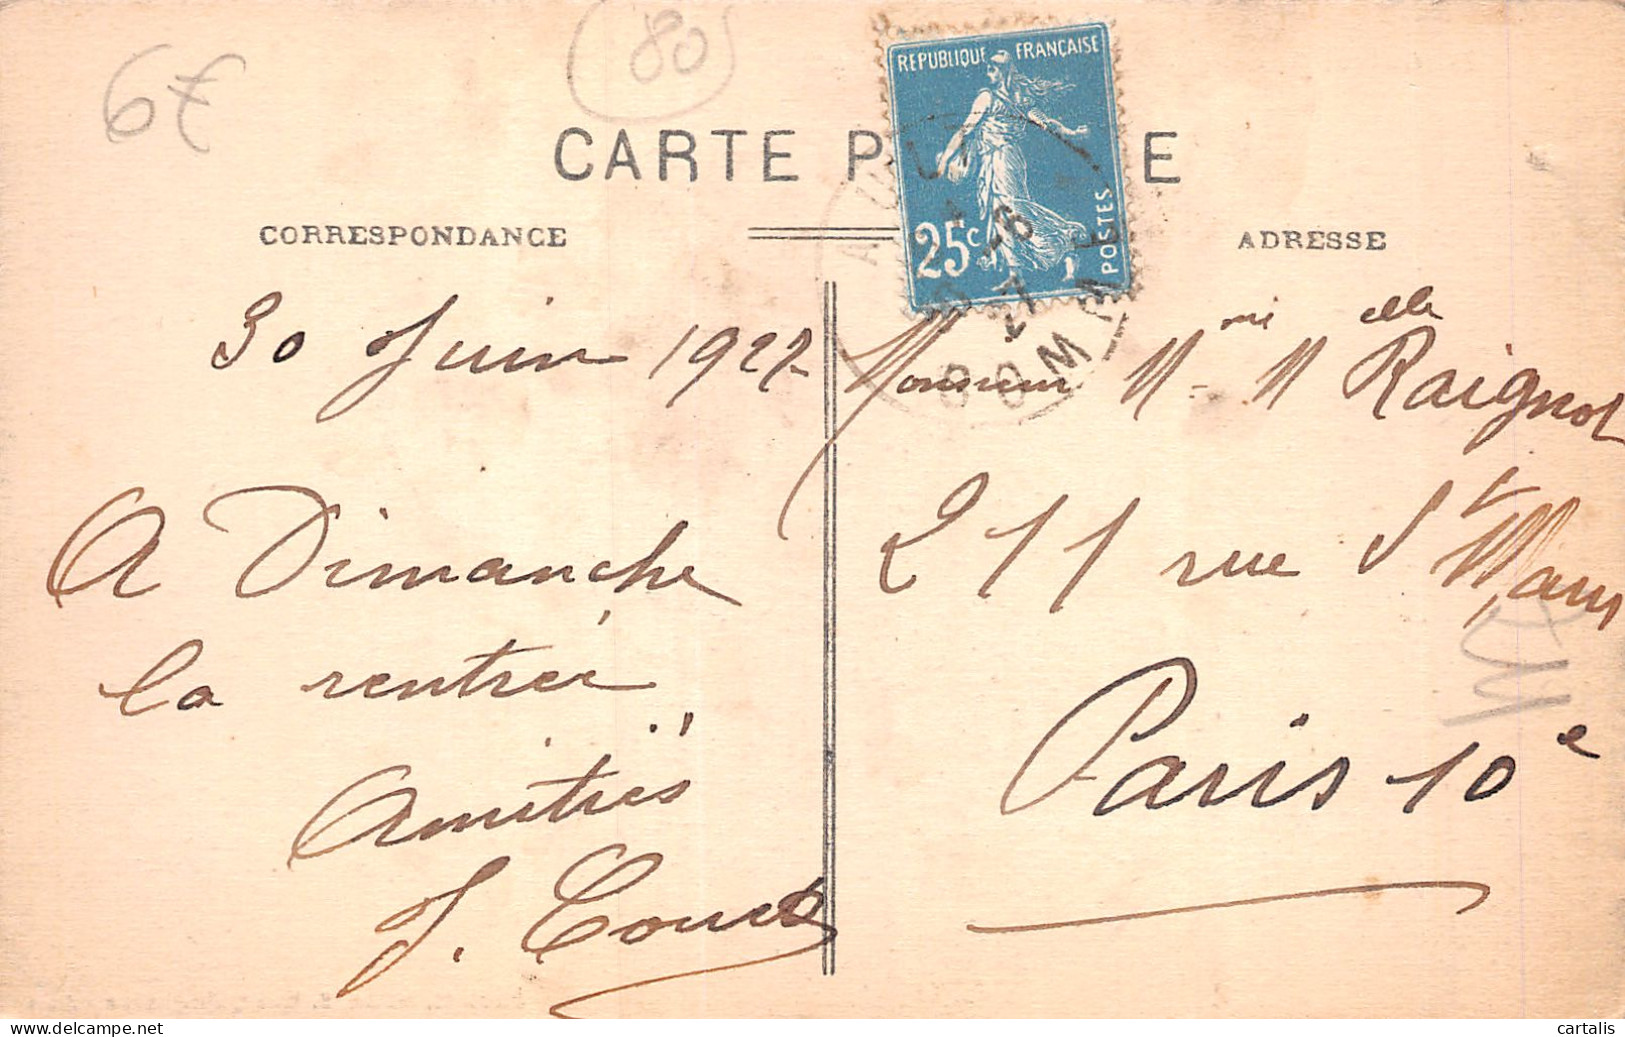 6€
80
CARTE P E
REPUBLIQUE FRANÇAISE
25c
POSTES
CORRESPONDANCE
ADRESSE
30 Juin 1927
A Dimanche
la rentrée
Amitiés
J.
Monsieur Mme Melle Raignot
211 rue St Maur
Paris 10e
SOMME
cartalis